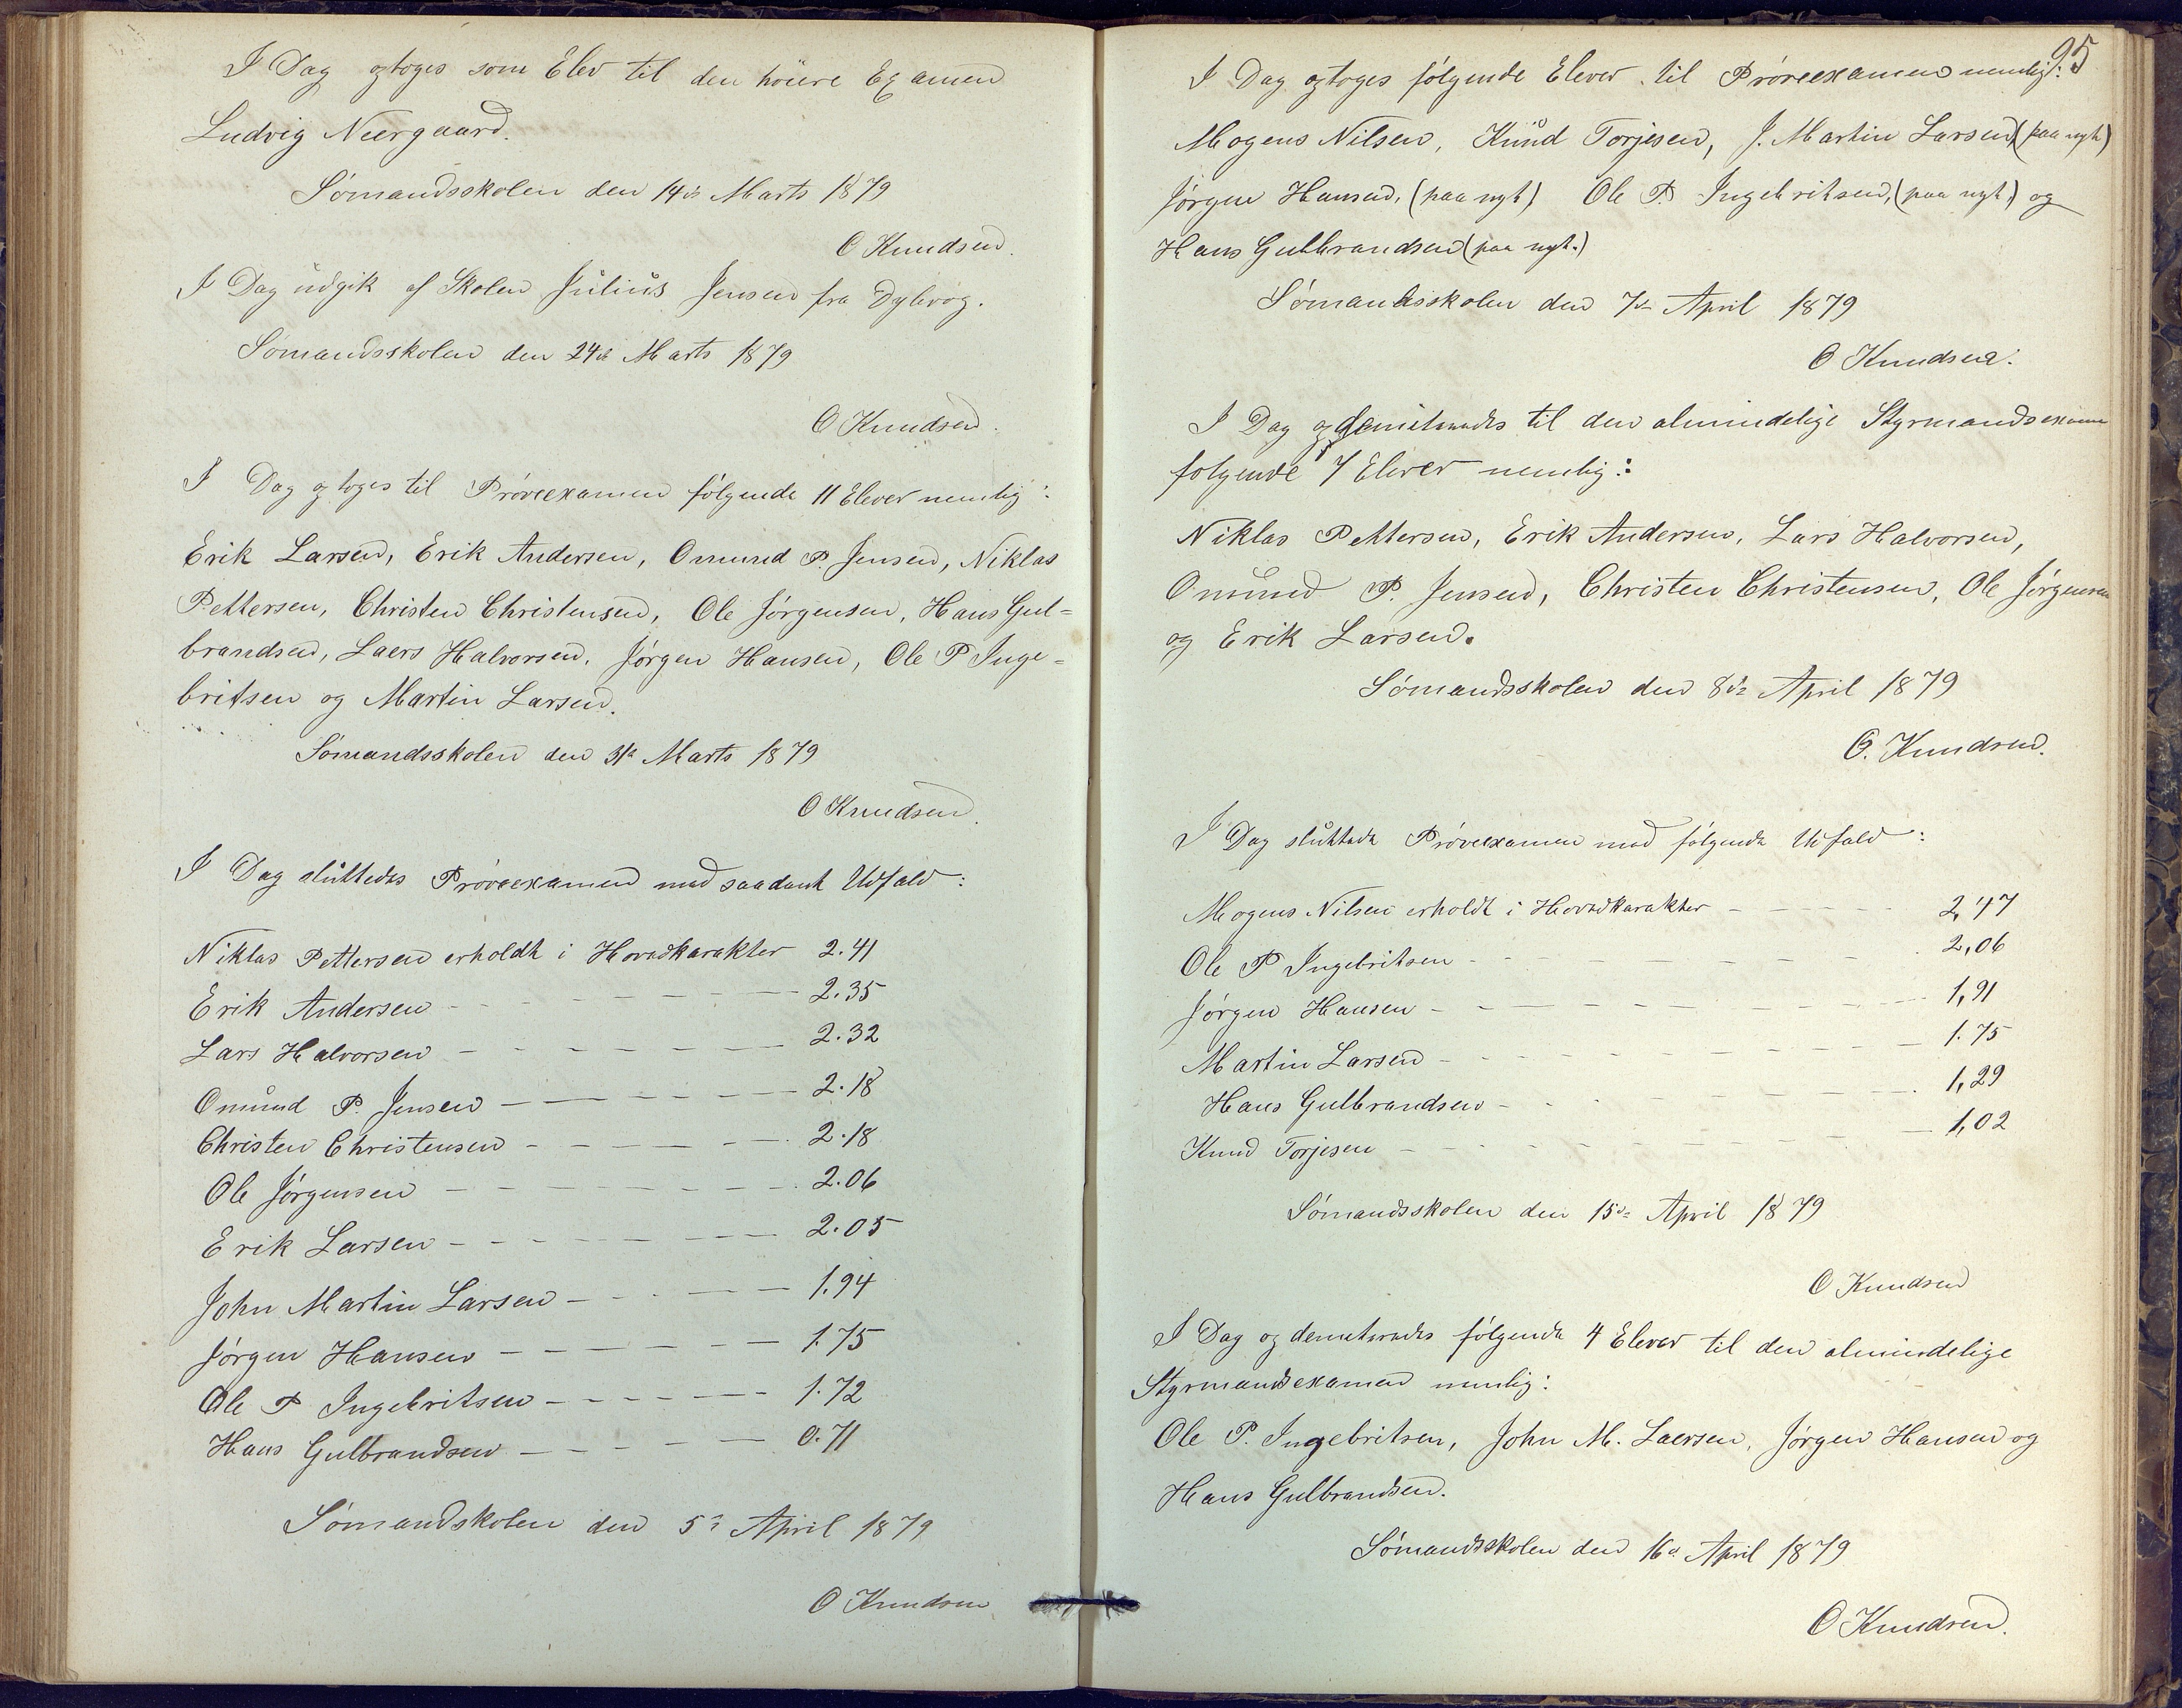 I Dag optoges som Elev til den höiere Examen
Ludvig Neergaard.
Sömandsskolen den 14de Marts 1879
O Knudsen.
I Dag udgik af Skolen Julius Jensen fra Dybvog.
Sömandsskolen den 24de Marts 1879
O Knudsen.
I Dag optoges til Pröveexamen fölgende 11 Elever nemlig:
Erik Larsen, Erik Andersen, Omund P. Jensen, Niklas
Pettersen, Christen Christensen, Ole Jörgensen, Hans Gul=
brandsen, Laers Halvorsen, Jörgen Hansen, Ole P Inge=
britsen og Martin Larsen.
Sömandsskolen den 31te Marts 1879
O Knudsen.
I Dag sluttedes Pröveexamen med saadant Udfald:
Niklas Pettersen erholdt i Hovedkarakter 2.41
Erik Andersen - - - - - - - 2.35
Lars Halvorsen - - - - - - - 2.32
Omund P. Jensen - - - - - - - 2.18
Christen Christensen - - - - - - 2.18
Ole Jörgensen - - - - - - - 2.06
Erik Larsen - - - - - - - 2.05
John Martin Larsen - - - - - 1.94
Jörgen Hansen - - - - - - 1.75
Ole P Ingebritsen - - - - - - 1.72
Hans Gulbrandsen - - - - - 0.71
Sömandskolen den 5te April 1879
O Knudsen
95
I Dag optoges fölgende Elever til Pröveexamen nemlig:
Mogens Nilsen, Knud Torjesen, J. Martin Larsen, (paa nyt)
Jörgen Hansen, (paa nyt) Ole P. Ingebritsen, (paa nyt) og
Hans Gulbrandsen (paa nyt.)
Sömandsskolen den 7de April 1879
O Knudsen.
I Dag demiteredes til den almindelige Styrmandsexamen
folgende 7 Elever nemlig:
Niklas Pettersen, Erik Andersen, Lars Halvorsen,
Omund P. Jensen, Christen Christensen, Ole Jörgensen
og Erik Larsen.
Sömandsskolen den 8de April 1879
O. Knudsen.
I Dag sluttede Pröveexamen med fölgende Udfald:
Mogens Nilsen erholdt i Hovedkarakter - - - - 2,47
Ole P Ingebritsen - - - - - - - - 2,06
Jörgen Hansen - - - - - - - - - 1,91
Martin Larsen - - - - - - - - - 1.75
Hans Gulbrandsen - - - - - - - - 1,29
Knud Torjesen - - - - - - - - - 1,02
Sömandsskolen den 15de April 1879
O Knudsen
I Dag og demiteredes fölgende 4 Elever til den almindelige
Styrmandsexamen nemlig:
Ole P. Ingebritsen, John M. Laersen, Jörgen Hansen og
Hans Gulbrandsen.
Sömandsskolen den 16de April 1879
O Knudsen.